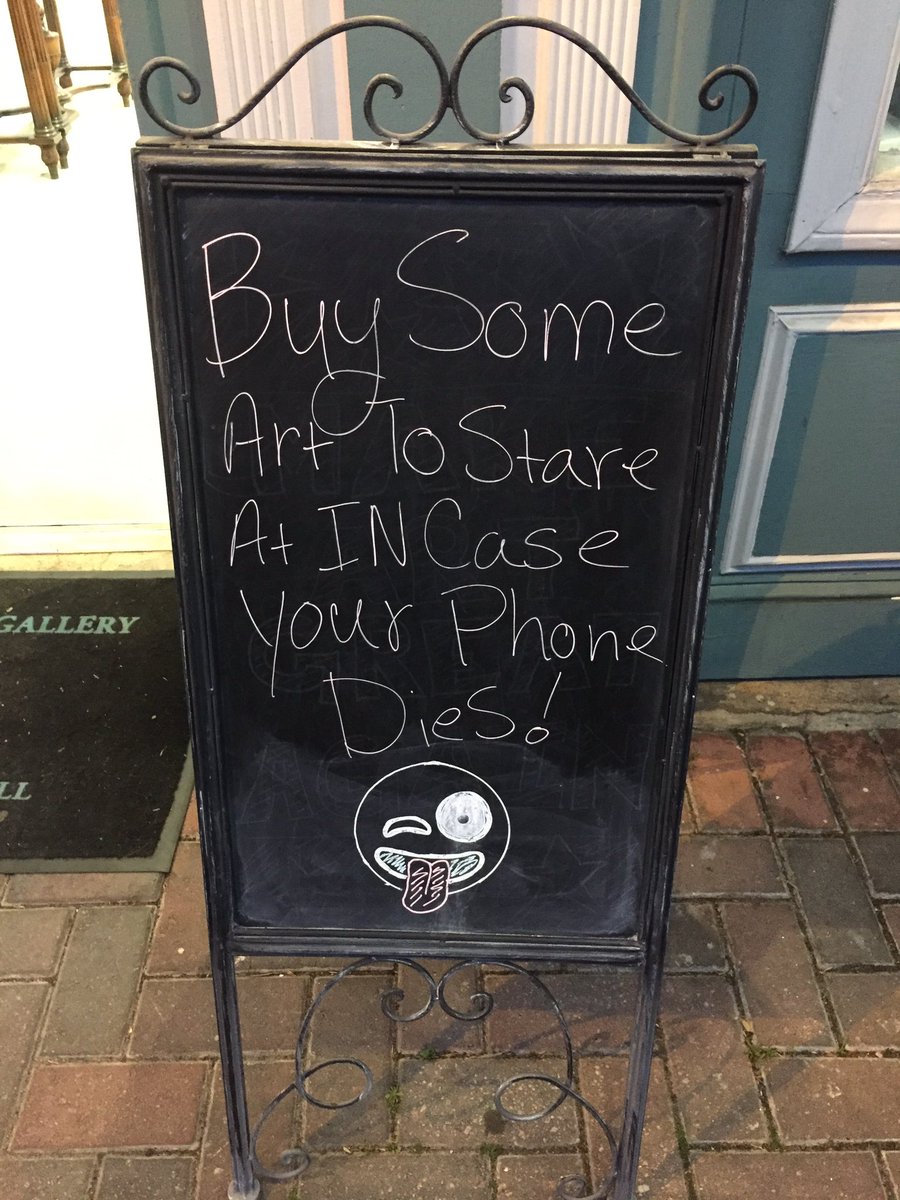 Buy Some
Art To Stare
At IN Case
Your Phone
Dies!
GALLERY
LL